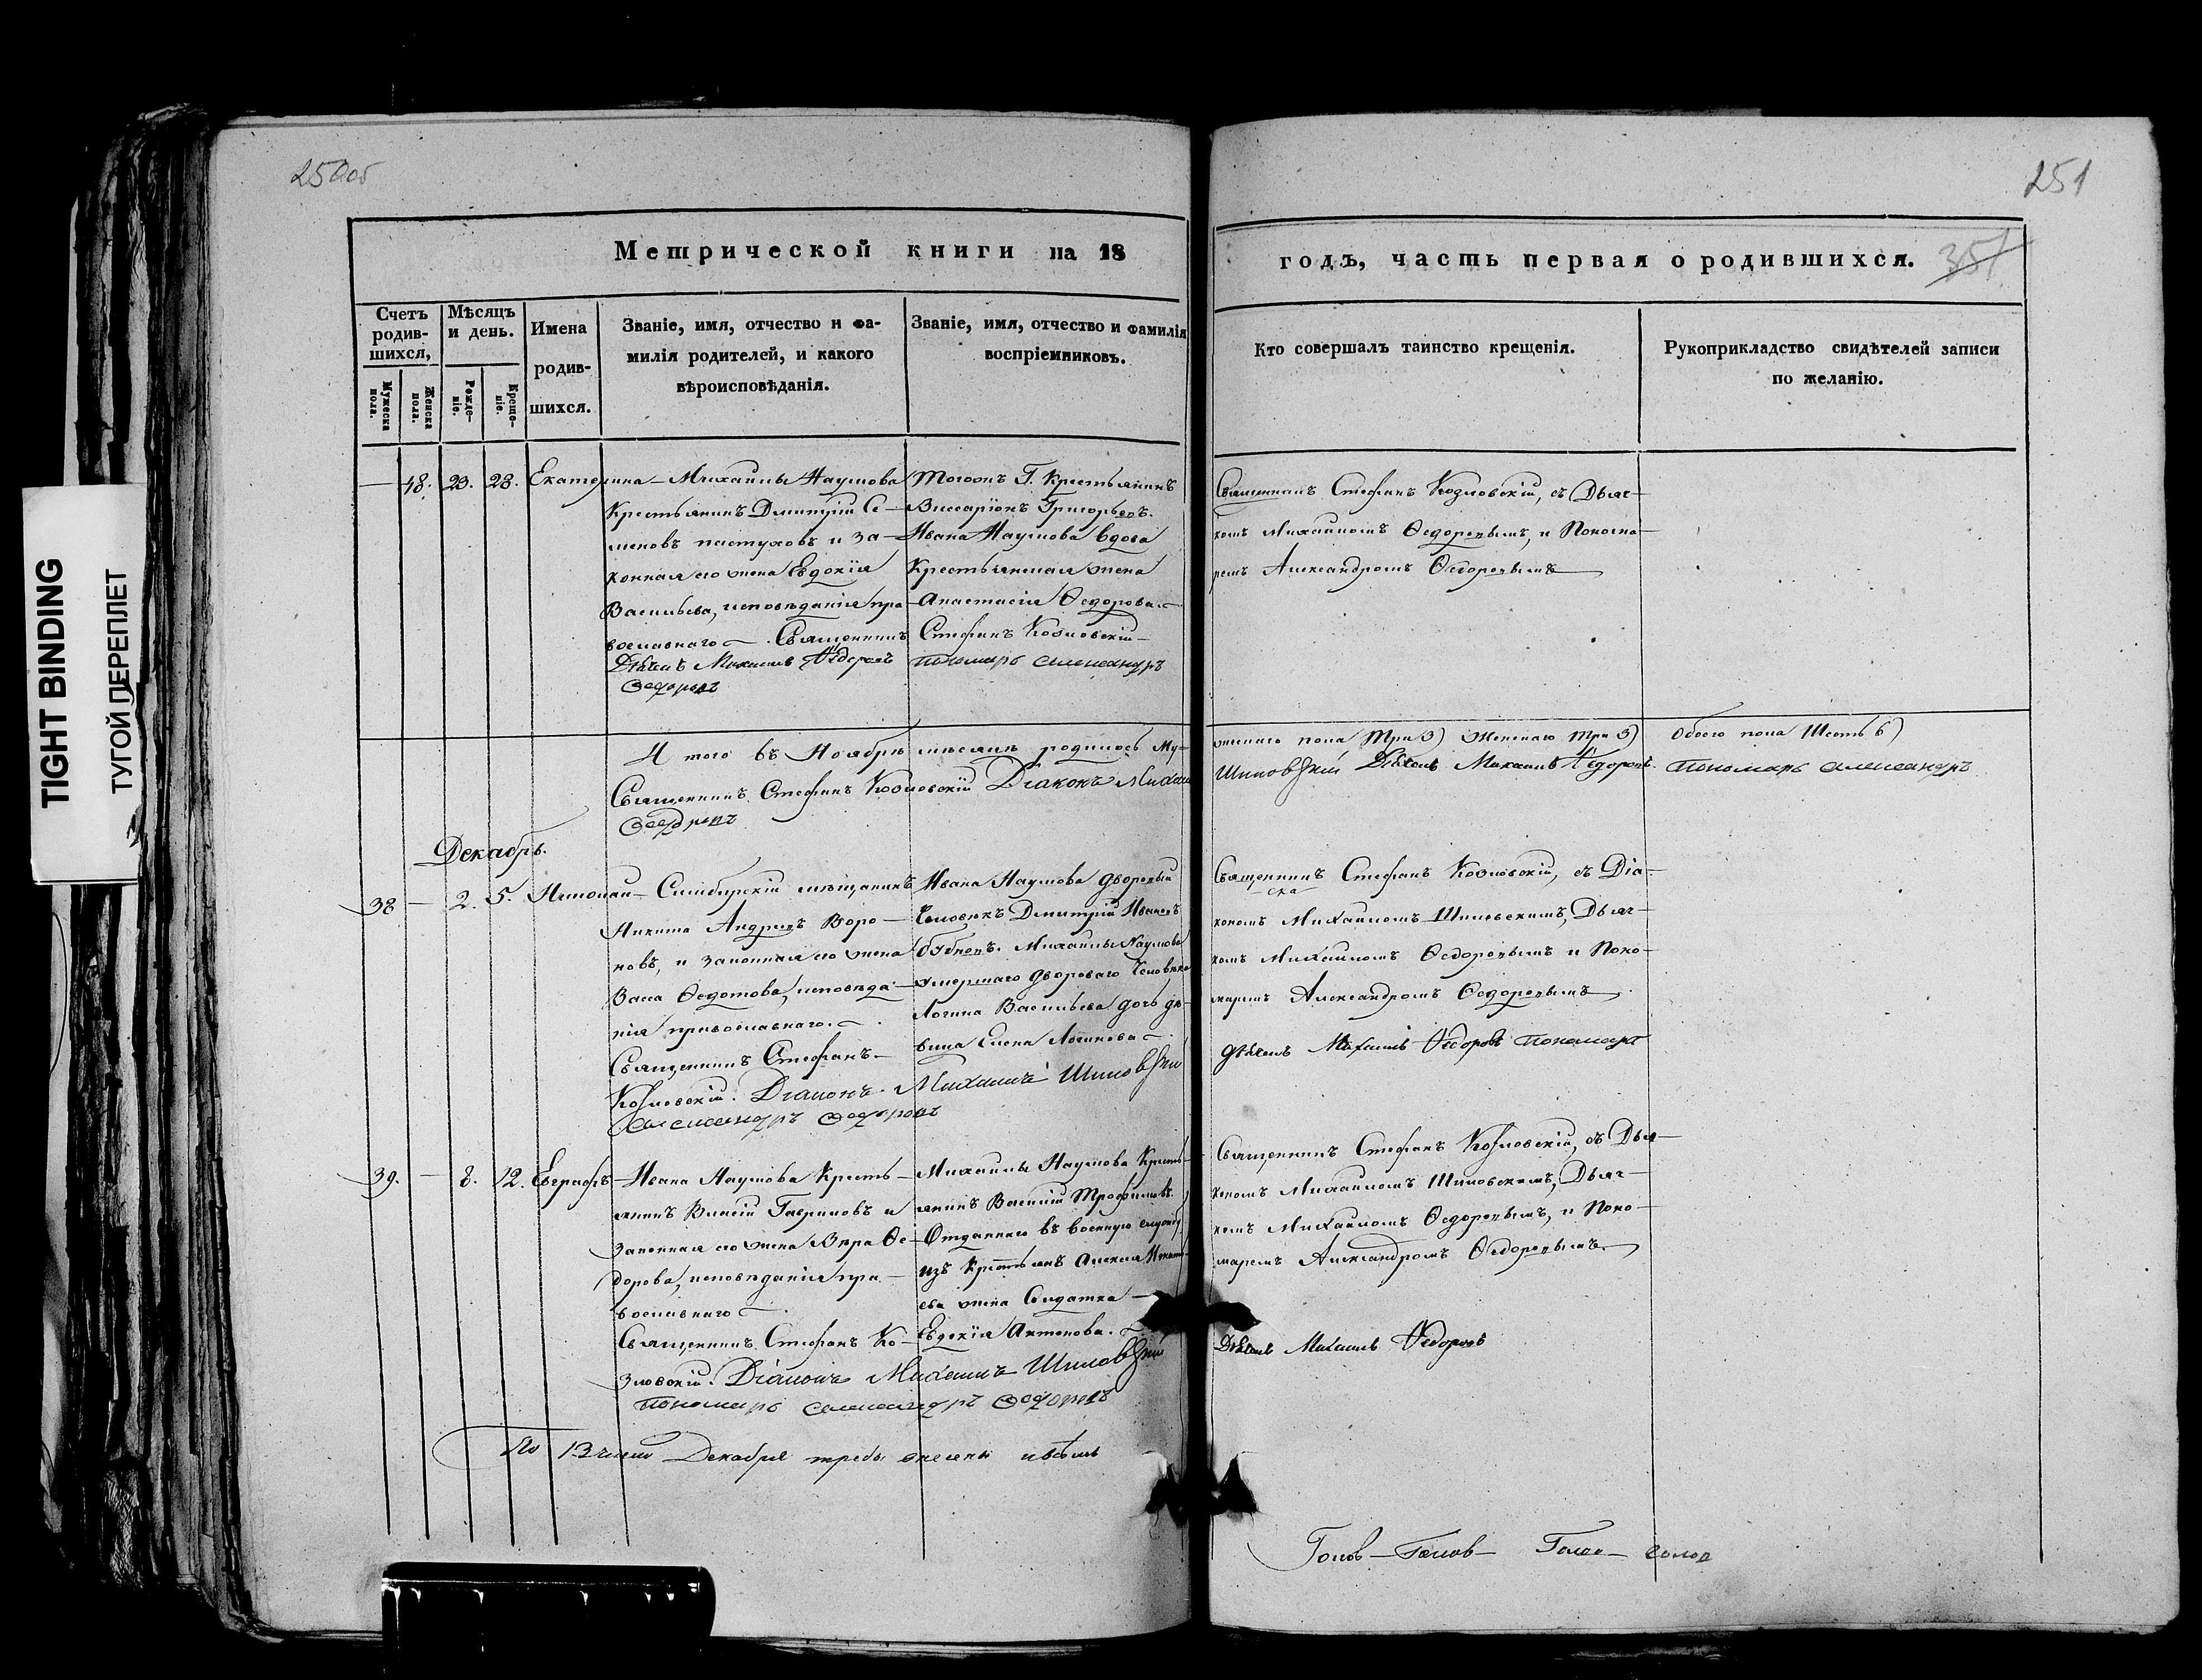 TIGHT BINDING
ТУГОЙ ПЕРЕПЛЕТ
250об
251
Метрической книги на 18
годъ, часть первая о родившихся.
351
Счетъ родив- шихся,
Мѣсяцъ и день.
Имена родив- шихся.
Званіе, имя, отчество и фа-
милія родителей, и какого
вѣроисповѣданія.
Званіе, имя, отчество и фамилія
воспріемниковъ.
Кто совершалъ таинство крещенія.
Рукоприкладство свидѣтелей записи
по желанію.
Мужеска пола.
Женска пола.
Рожде- ніе.
Креще- ніе.
— 48. 23. 28. Екатерина
Михаилы Наумова
Крестьянинъ Димитрій Се-
меновъ пастуховъ и за-
конная его жена Евдокія
Васильева, исповѣданія пра-
вославнаго. Священникъ
Дьячекъ Михаилъ Ѳедоровъ
Ѳедоровъ
Тогожъ Г. Крестьянинъ
Виссаріонъ Григорьевъ.
Ивана Наумова вдова
Крестьянская жена
Анастасія Ѳедорова.
Стефанъ Козловскій
Пономарь Александръ
Священникъ Стефанъ Козловскій, съ Дьяч-
комъ Михаиломъ Ѳедоровымъ, и Понома-
ремъ Александромъ Ѳедоровымъ
И того въ Ноябрѣ мѣсяцѣ родилось му-
жескаго пола Три 3) Женскаго Три 3) Обоего пола Шесть 6)
Священникъ Стефанъ Козловскій Діаконъ Михаилъ
Шиловскій Дьячекъ Михаилъ Ѳедоровъ. Пономарь Александръ
Ѳедоровъ
Декабрь.
38 — 2. 5. Николай
Симбирскій мѣщанинъ
Никита Андреевъ Воро-
новъ, и законная его жена
Васса Ѳедотова, исповѣда-
нія православнаго.
Священникъ Стефанъ
Козловскій. Діаконъ Михаилъ Шиловскій
Александръ Ѳедоровъ
Ивана Наумова дворовый
Человѣкъ Димитрій Ивановъ
Михаилы Наумова
умершаго двороваго Человѣка
Логина Васильева дочь дѣ-
вица Елена Логинова
Священникъ Стефанъ Козловскій, съ Діа-
ска
кономъ Михаиломъ Шиловскимъ, Дьяч-
комъ Михаиломъ Ѳедоровымъ и Поно-
маремъ Александромъ Ѳедоровымъ
Дьячекъ Михаилъ Ѳедоровъ Пономарь
39. — 8. 12. Евграфъ
Ивана Наумова Кресть-
янинъ Власій Гавриловъ и
Законная его жена Вѣра Ѳе-
дорова, исповѣданія пра-
вославнаго
Священникъ Стефанъ Ко-
зловскій. Діаконъ Михаилъ Шиловскій
Пономарь Александръ Ѳедоровъ
Михаилы Наумова Кресть-
янинъ Василій Трофимовъ.
Отданнаго въ военную службу
изъ Крестьянъ Алексѣя
ева жена Солдатка
Евдокія Антонова.
Священникъ Стефанъ Козловскій, съ Діа-
кономъ Михаиломъ Шиловскимъ, Дьяч-
комъ Михаиломъ Ѳедоровымъ, и Поно-
маремъ Александромъ Ѳедоровымъ.
Дьячекъ Михаилъ Ѳедоровъ
По 13 число Декабря требы внесены